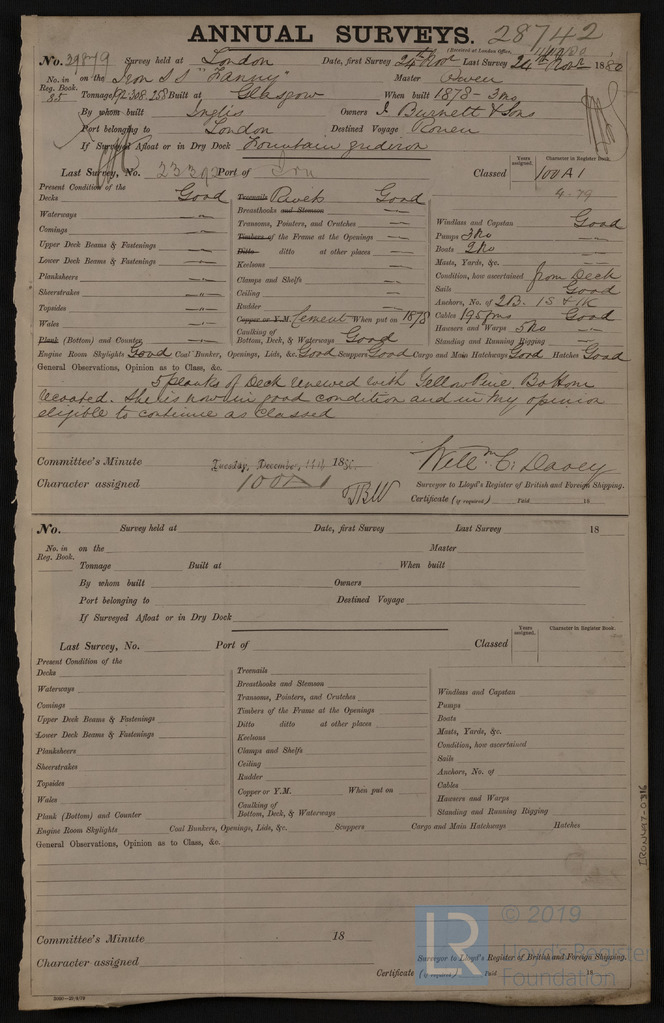 ANNUAL SURVEYS. 28742
(Received at London Office,
No. 39879 Survey held at London Date, first Survey 24th Novr Last Survey 24th Novr 1880
No. in Reg. Book. 85 on the Iron SS "Fanny" Master Owen
Tonnage 308 258 Built at Glasgow When built 1878 - 3mo
By whom built Inglis Owners J. Burnett & Sons
Port belonging to London Destined Voyage Rouen
If Surveyed Afloat or in Dry Dock Fountain gridiron
Last Survey, No. Port of Classed Years assigned. Character in Register Book. 100A1
4.79
Present Condition of the
Decks Good Treenails Rivets Good
Waterways " Breasthooks and Stemson " Windlass and Capstan Good
Comings " Transoms, Pointers, and Crutches " Pumps 3 No
Upper Deck Beams & Fastenings " Timbers of the Frame at the Openings " Boats 2 No
Lower Deck Beams & Fastenings " Ditto ditto at other places " Masts, Yards, &c. "
Planksheers " Keelsons " Condition, how ascertained from Deck
Sheerstrakes " Clamps and Shelfs " Sails Good
Topsides " Ceiling " Anchors, No. of 2B. 1S & 1K
Wales " Rudder " Cables 195 fms Good
Plank (Bottom) and Counter " Copper or Y.M. Cement When put on 1878 Hawsers and Warps 5 No
Caulking of Bottom, Deck, & Waterways Good Standing and Running Rigging "
Engine Room Skylights Good Coal Bunker, Openings, Lids, &c. Good Scuppers Good Cargo and Main Hatchways Good Hatches Good
General Observations, Opinion as to Class, &c.
5 planks of Deck renewed with Yellow Pine Bottom
recoated. She is now in good condition and in my opinion
eligible to continue as Classed
Committee's Minute Tuesday, December, 18 Willm C. Davey
Character assigned 100A1 Surveyor to Lloyd's Register of British and Foreign Shipping.
Certificate (if required) Paid 18
No. Survey held at Date, first Survey Last Survey 18
No. in Reg. Book. on the Master
Tonnage Built at When built
By whom built Owners
Port belonging to Destined Voyage
If Surveyed Afloat or in Dry Dock
Last Survey, No. Port of Classed Years assigned. Character in Register Book.
Present Condition of the
Decks Treenails
Waterways Breasthooks and Stemson Windlass and Capstan
Comings Transoms, Pointers, and Crutches Pumps
Upper Deck Beams & Fastenings Timbers of the Frame at the Openings Boats
Lower Deck Beams & Fastenings Ditto ditto at other places Masts, Yards, &c.
Planksheers Keelsons Condition, how ascertained
Sheerstrakes Clamps and Shelfs Sails
Topsides Ceiling Anchors, No. of
Wales Rudder Cables
Plank (Bottom) and Counter Copper or Y.M. When put on Hawsers and Warps
Caulking of Bottom, Deck, & Waterways Standing and Running Rigging
Engine Room Skylights Coal Bunkers, Openings, Lids, &c. Scuppers Cargo and Main Hatchways Hatches
General Observations, Opinion as to Class, &c.
IRON447-0316
Committee's Minute 18
Character assigned Surveyor to Lloyd's Register of British and Foreign Shipping.
Certificate (if required) Paid 18
LR © 2019
Lloyd's Register
Foundation